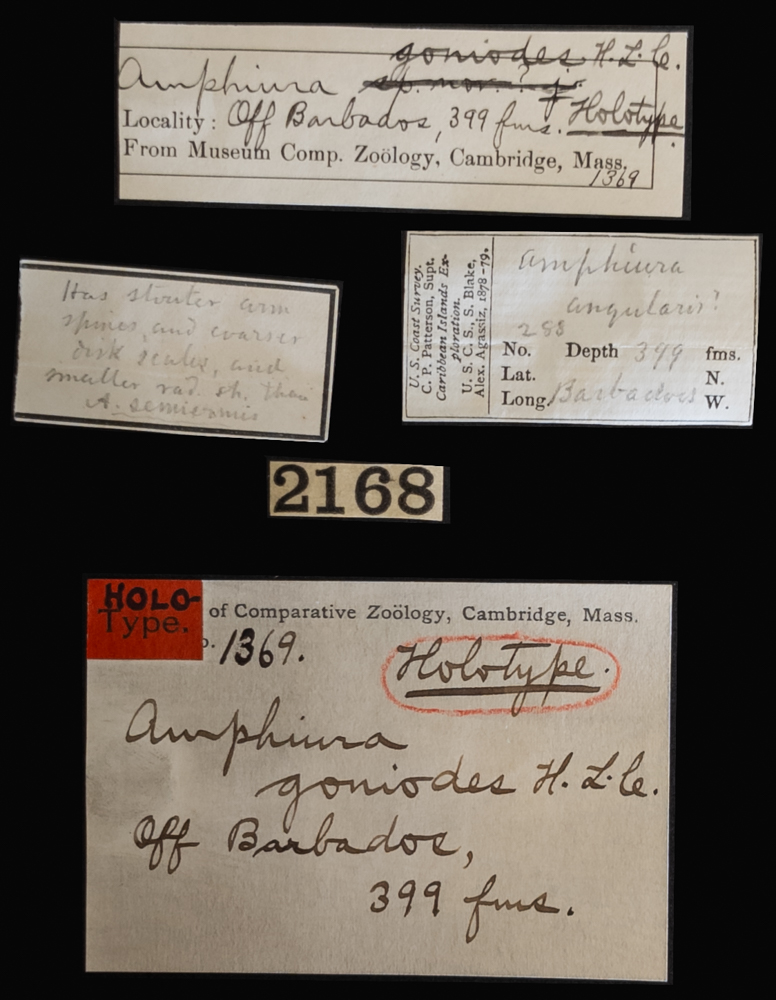 goniodes H. L. C.
Amphiura sp. nov. ?
Locality : Off Barbados, 399 fms. Holotype
From Museum Comp. Zoölogy, Cambridge, Mass.
1369
Has stouter arm
spines, and coarser
disk scales, and
smaller rad. sh. than
A. semiermis
U. S. Coast Survey.
C. P. Patterson, Supt.
Caribbean Islands Ex-
ploration.
U. S. C. S., S. Blake,
Alex. Agassiz, 1878-79.
Amphiura
angularis?
288
No. Depth 399 fms.
Lat. N.
Long. Barbadoes W.
2168
HOLO-
Type. of Comparative Zoölogy, Cambridge, Mass.
1369.
Holotype.
Amphiura
goniodes H. L. C.
Off Barbados,
399 fms.